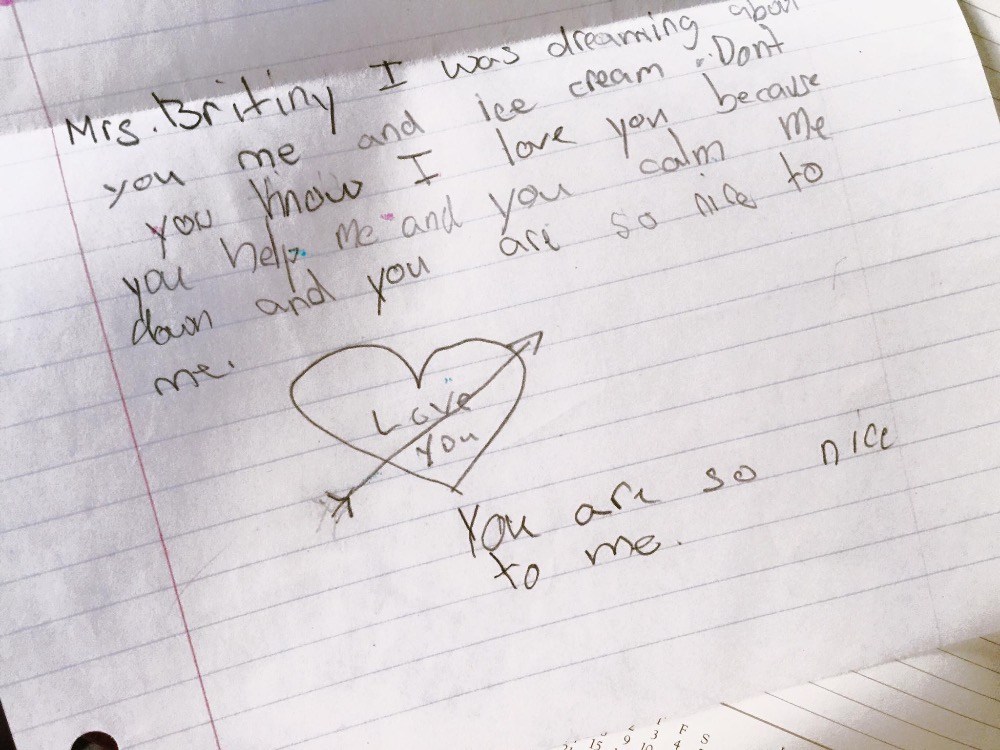 Mrs. Britiny I was dreaming abou
you me and ice cream. Dont
you know I love you because
you help me and you calm me
down and you are so nice to
me.
Love
you
You are so nice
to me.
F S
3
15 9 10 4